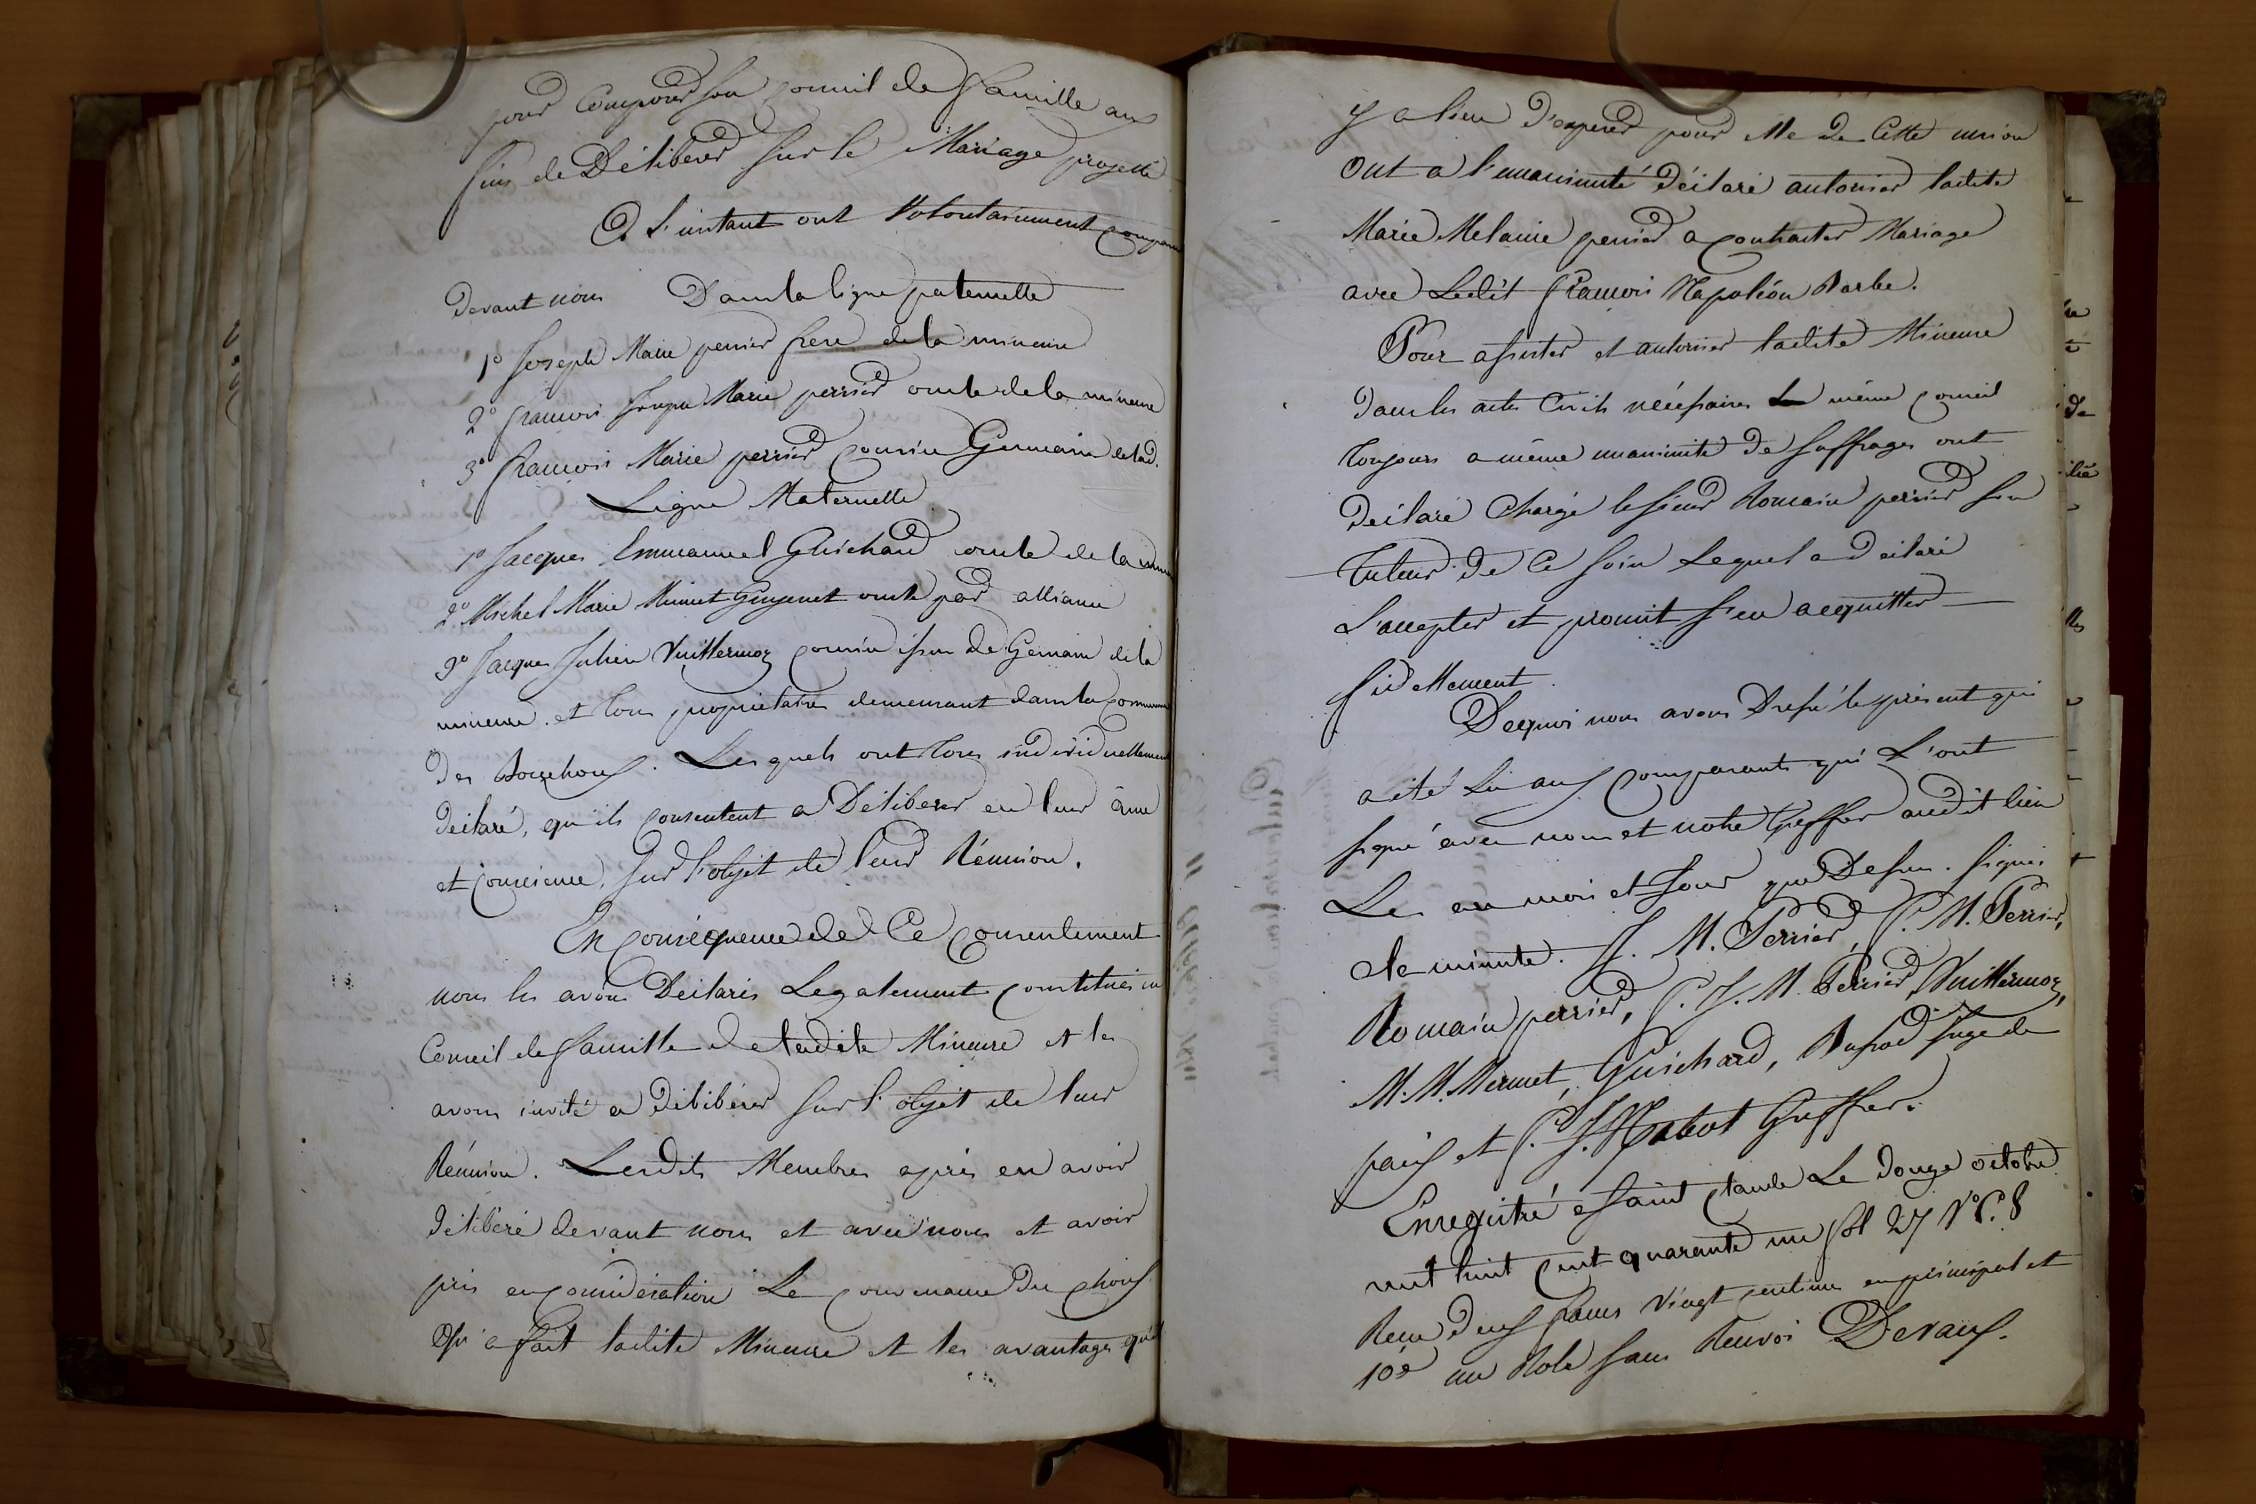 pour composer son conseil de famille aux
fins de Délibérer sur le Mariage projetté
A l'instant ont Volontairement comparu
devant nous Dans la ligne paternelle
1º Joseph Marie perrier frere de la mineure
2º françois Joseph Marie perrier oncle de la mineure
3º françois Marie perrier cousin Germain de lad.
Ligne Maternelle
1º Jacques Emmanuel Guichard oncle de la
2º Michel Marie Mermet oncle par alliance
3º Jacques Julien Vuillermoz cousin issu de Germain de la
mineure. et tous propriétaires demeurant dans la commune
des Bouchoux. Lesquels ont tous individuellement
déclaré, qu'ils consentent a Délibérer en leur âme
et conscience, sur l'objet de leur Réunion.
En conséquence de Ce consentement
nous les avons Déclarés Legalement constitués en
Conseil de famille de ladite Mineure et les
avons invité a Délibérer sur l'objet de leur
Réunion. Lesdits Membres après en avoir
délibéré devant nous et avec nous et avoir
pris en considération Le convenance Du choix
Qu'a fait ladite Mineure et les avantages qu'il
y a lieu D'esperer pour elle de Cette union
Ont a l'unanimité Déclaré autoriser ladite
Marie Melanie perrier a contracter Mariage
avec Ledit françois Napoléon Barbe.
Pour assister et autoriser ladite Mineure
dans les actes Civils nécessaires Le même conseil
toujours a même unanimité de suffrages ont
Déclaré Chargé le sieur Romain perrier son
tuteur de Ce soin Lequel a déclaré
L'accepter et promit s'en acquitter
fidellement.
De quoi nous avons Dressé le présent qui
a été Lu aux comparants qui L'ont
signé avec nous et notre Greffier audit lieu
Les an mois et Jour que Dessus. Signés
a la minute. J. M. Perrier, f. M. Perrier,
Romain perrier, f. J. M. Perrier, Vuillermoz,
M. M. Mermet, Guichard, juge de
paix et Greffier.
Enregistré a Saint Claude Le Douze octobre
mil huit cent quarante un fol 27 Vº C. 8
Recu Deux francs Vingt centimes en principal et
10e un Role sans Renvoi Devaux.